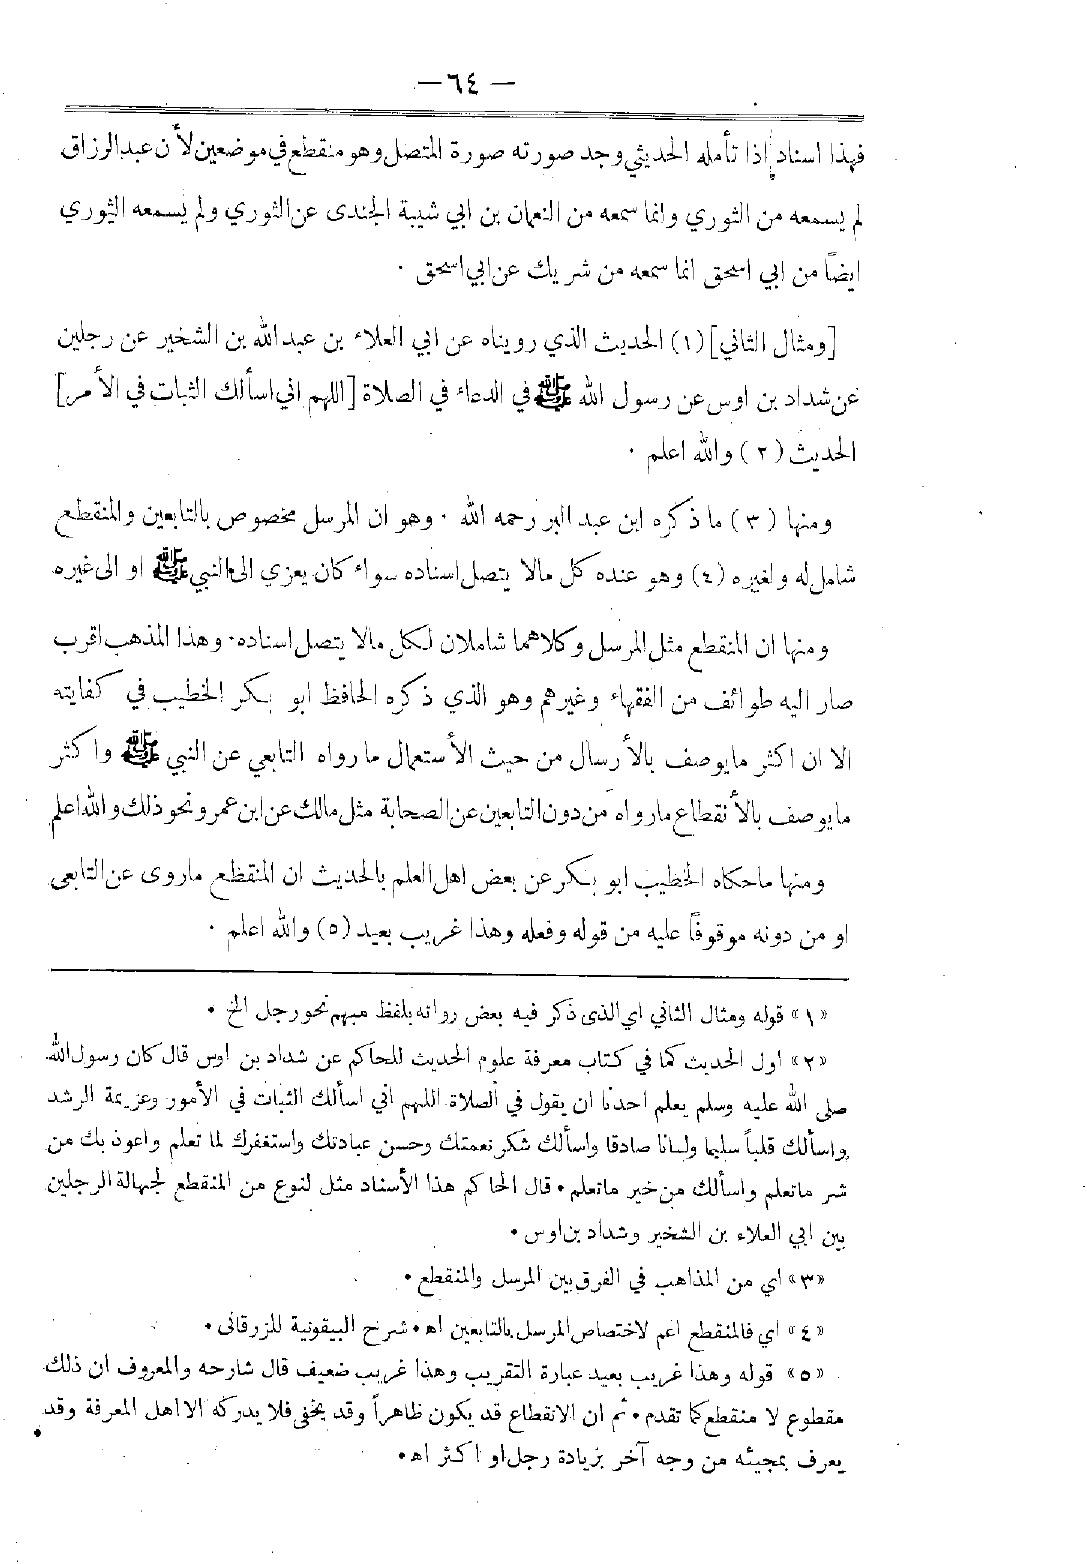 — ٦٤ —
فهذا اسناد إذا تأمله الحديثي وجد صورته صورة المتصل وهو منقطع في موضعين لأن عبد الرزاق
لم يسمعه من الثوري وانما سمعه من النعمان بن ابي شيبة الجندى عن الثوري ولم يسمعه الثوري
ايضاً من ابي اسحق انما سمعه من شريك عن ابي اسحق ٠
[ومثال الثاني] (١) الحديث الذي رويناه عن ابي العلاء بن عبد الله بن الشخير عن رجلين
عن شداد بن اوس عن رسول الله ﷺ في الدعاء في الصلاة [اللهم اني اسألك الثبات في الأمر]
الحديث (٢) والله اعلم ٠
ومنها (٣) ما ذكره ابن عبد البر رحمه الله ٠ وهو ان المرسل مخصوص بالتابعين والمنقطع
شامل له ولغيره (٤) وهو عنده كل مالا يتصل اسناده سواء كان يعزي الى النبي ﷺ او الى غيره
ومنها ان المنقطع مثل المرسل وكلاهما شاملان لكل مالا يتصل اسناده٠ وهذا المذهب اقرب
صار اليه طوائف من الفقهاء وغيرهم وهو الذي ذكره الحافظ ابو بكر الخطيب في كفايته
الا ان اكثر مايوصف بالأرسال من حيث الأستعمال مارواه التابعي عن النبي ﷺ واكثر
مايوصف بالأنقطاع مارواه من دون التابعين عن الصحابة مثل مالك عن ابن عمر ونحو ذلك والله اعلم
ومنها ماحكاه الخطيب ابو بكر عن بعض اهل العلم بالحديث ان المنقطع ماروى عن التابعي
او من دونه موقوفاً عليه من قوله وفعله وهذا غريب بعيد (٥) والله اعلم ٠
«١» قوله ومثال الثاني اي الذى ذكر فيه بعض رواته بلفظ مبهم نحو رجل الخ ٠
«٢» اول الحديث كما في كتاب معرفة علوم الحديث للحاكم عن شداد بن اوس قال كان رسول الله
صلى الله عليه وسلم يعلم احدنا ان يقول في الصلاة اللهم اني اسألك الثبات في الأمور وعزيمة الرشد
واسألك قلباً سليما ولسانا صادقا واسألك شكر نعمتك وحسن عبادتك واستغفرك لما تعلم واعوذ بك من
شر ماتعلم واسألك من خير ماتعلم ٠ قال الحاكم هذا الأسناد مثل لنوع من المنقطع لجهالة الرجلين
بين ابي العلاء بن الشخير وشداد بن اوس ٠
«٣» اي من المذاهب في الفرق بين المرسل والمنقطع ٠
«٤» اي فالمنقطع اعم لاختصاص المرسل بالتابعين اه ٠ شرح البيقونية للزرقانى ٠
«٥» قوله وهذا غريب بعيد عبارة التقريب وهذا غريب ضعيف قال شارحه والمعروف ان ذلك
مقطوع لا منقطع كما تقدم ٠ ثم ان الانقطاع قد يكون ظاهراً وقد يخفى فلا يدركه الا اهل المعرفة وقد
يعرف بمجيئه من وجه آخر بزيادة رجل او اكثر اه ٠